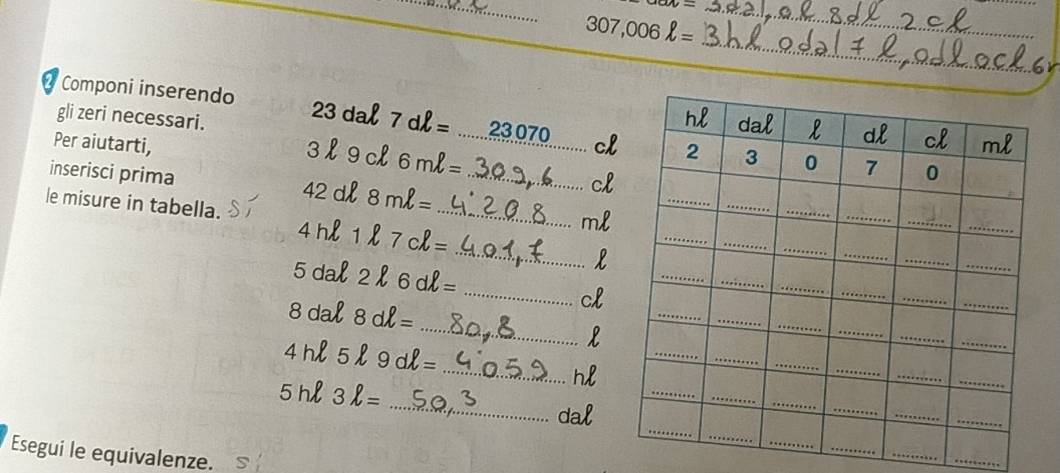 3dal, 0l 8dl 2cl
307,006 ℓ = 3hl 0dal 7 l, 0dl 0cl 6m
2 Componi inserendo
gli zeri necessari.
Per aiutarti,
inserisci prima
le misure in tabella. Sì
23 daℓ 7 dℓ = 23 070 cℓ
3 ℓ 9 cℓ 6 mℓ = 309,6 cℓ
42 dℓ 8 mℓ = 4.208 mℓ
4 hℓ 1 ℓ 7 cℓ = 401,7 ℓ
5 daℓ 2 ℓ 6 dℓ = cℓ
8 daℓ 8 dℓ = 80,8 ℓ
4 hℓ 5 ℓ 9 dℓ = 4.059 hℓ
5 hℓ 3 ℓ = 50,3 daℓ
hℓ daℓ ℓ dℓ cℓ mℓ
2 3 0 7 0
Esegui le equivalenze. Sì